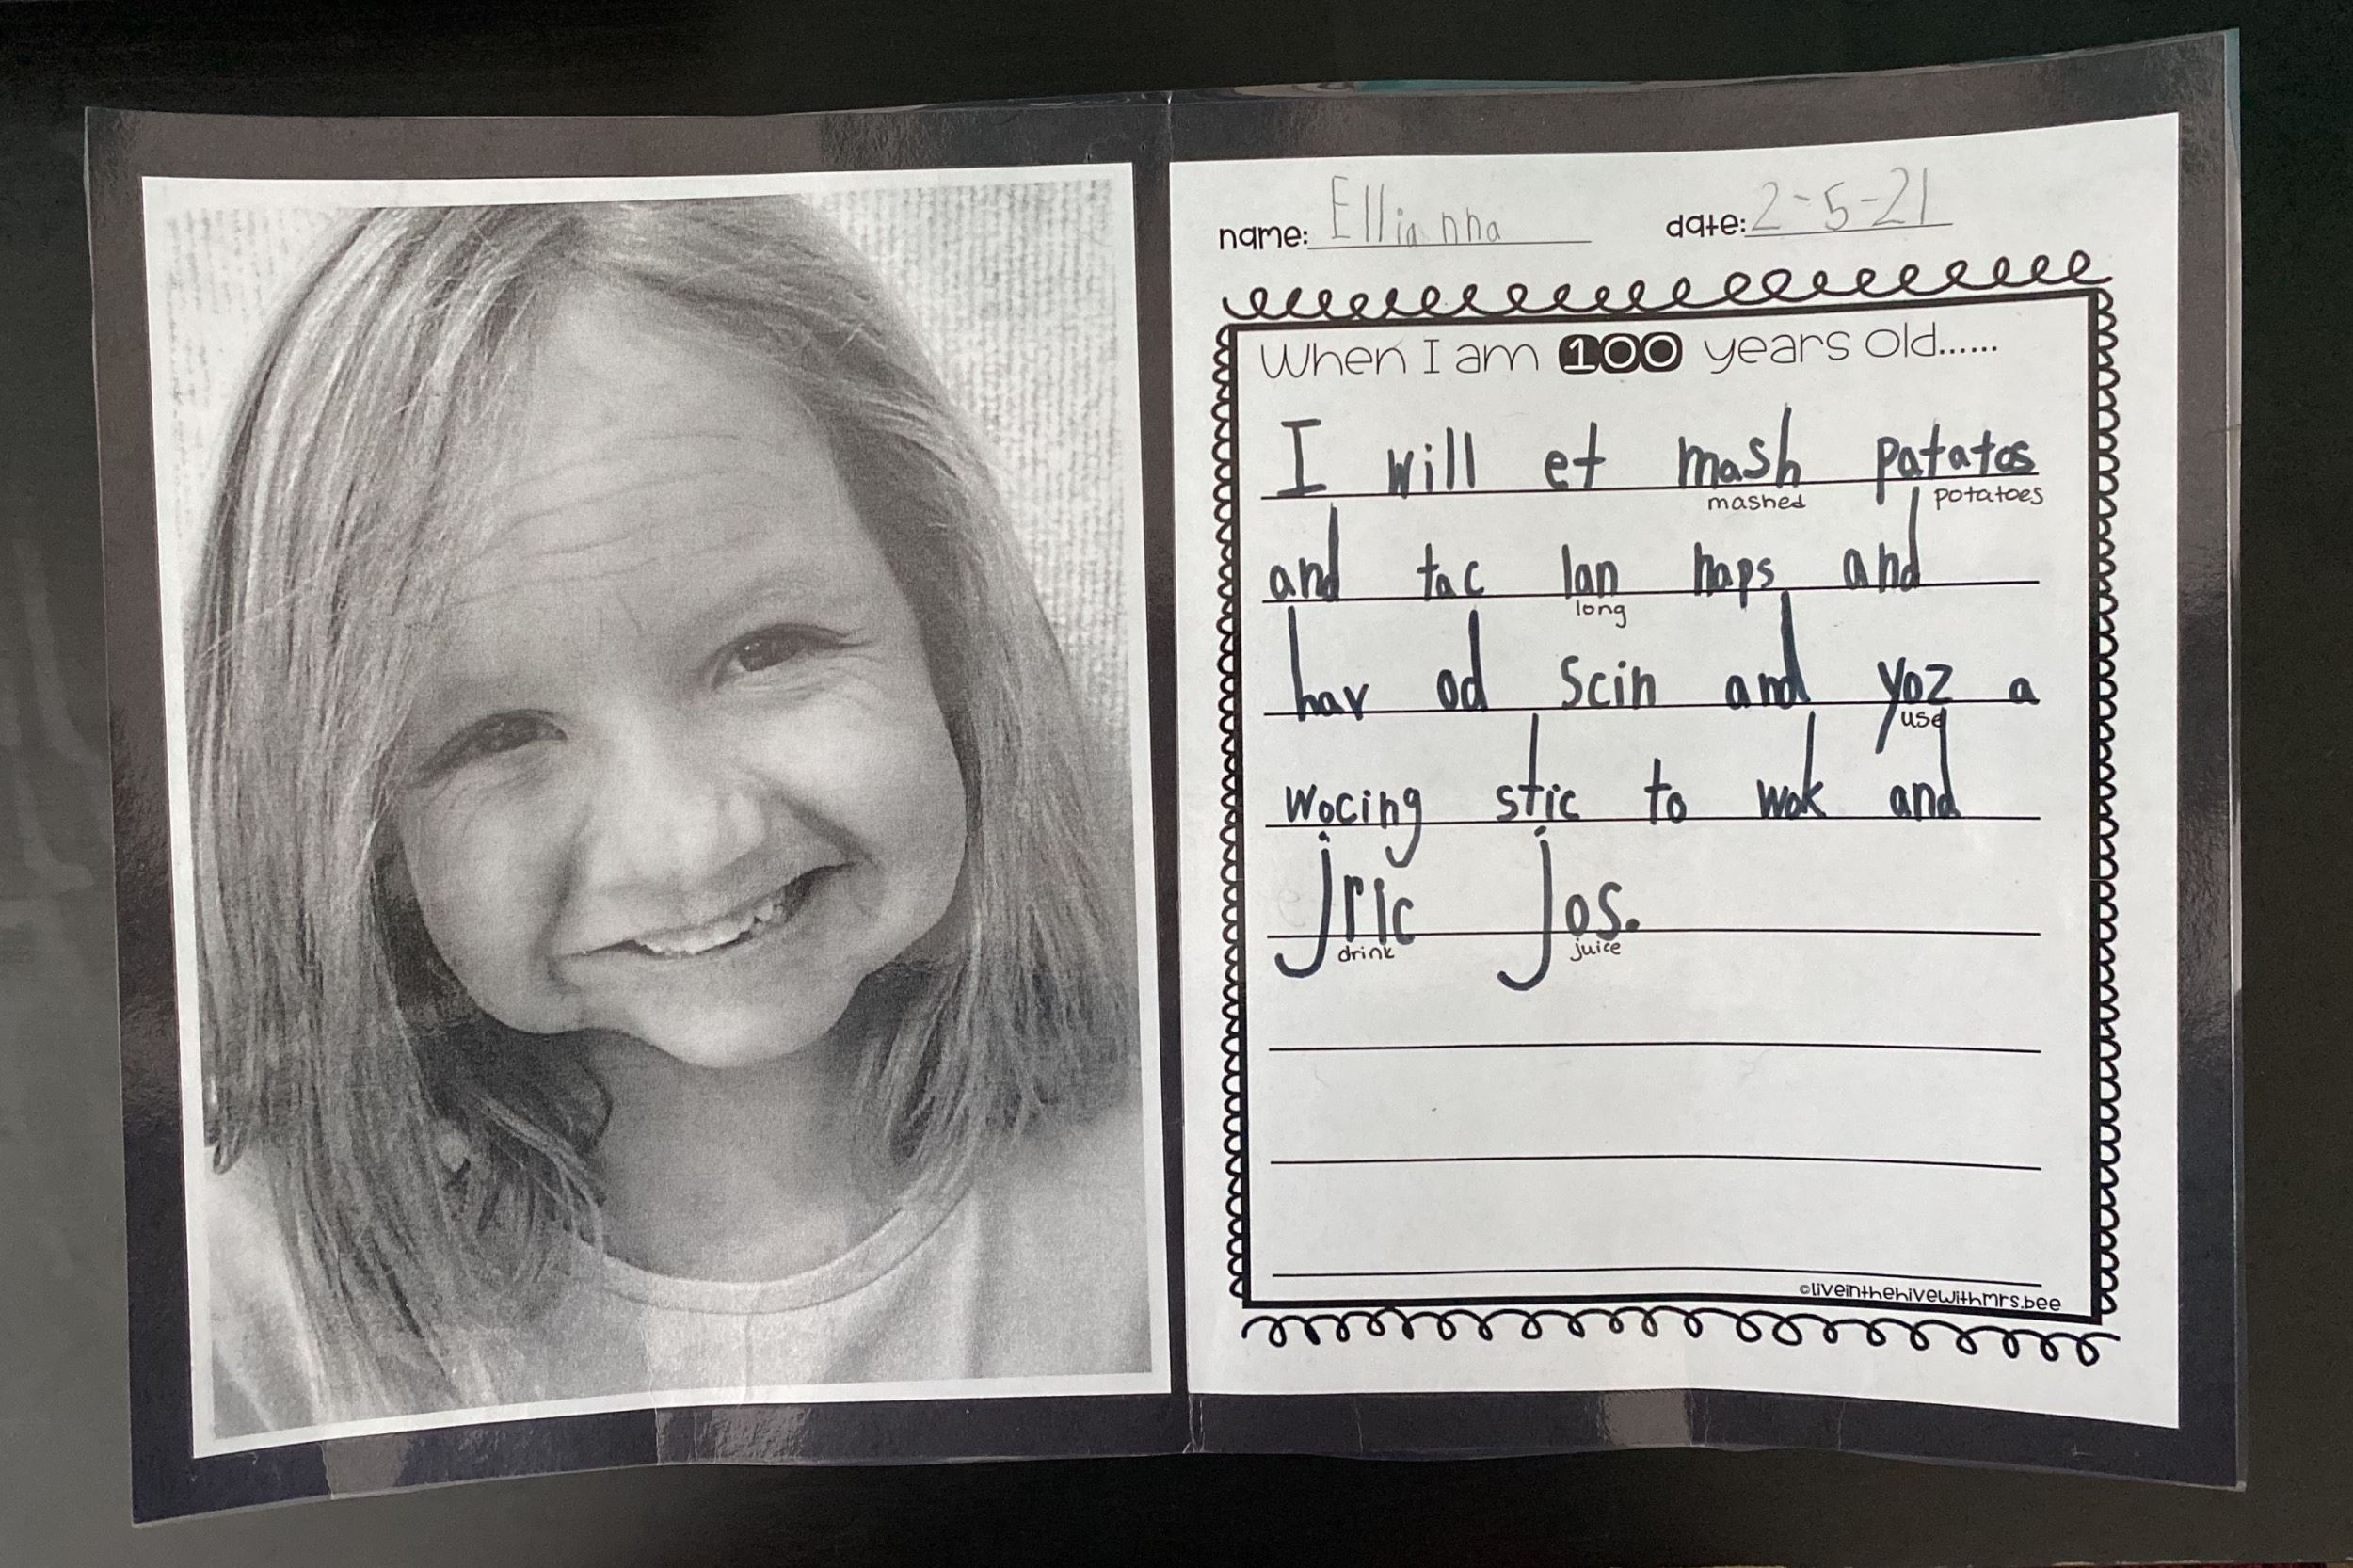 name: Ellianna date: 2-5-21
When I am 100 years old......
I will et mash patatos
mashed potatoes
and tac lan naps and
long
hav od scin and yoz a
use
wocing stic to wok and
jric jos.
drink juice
©liveinthehivewithmrs.bee